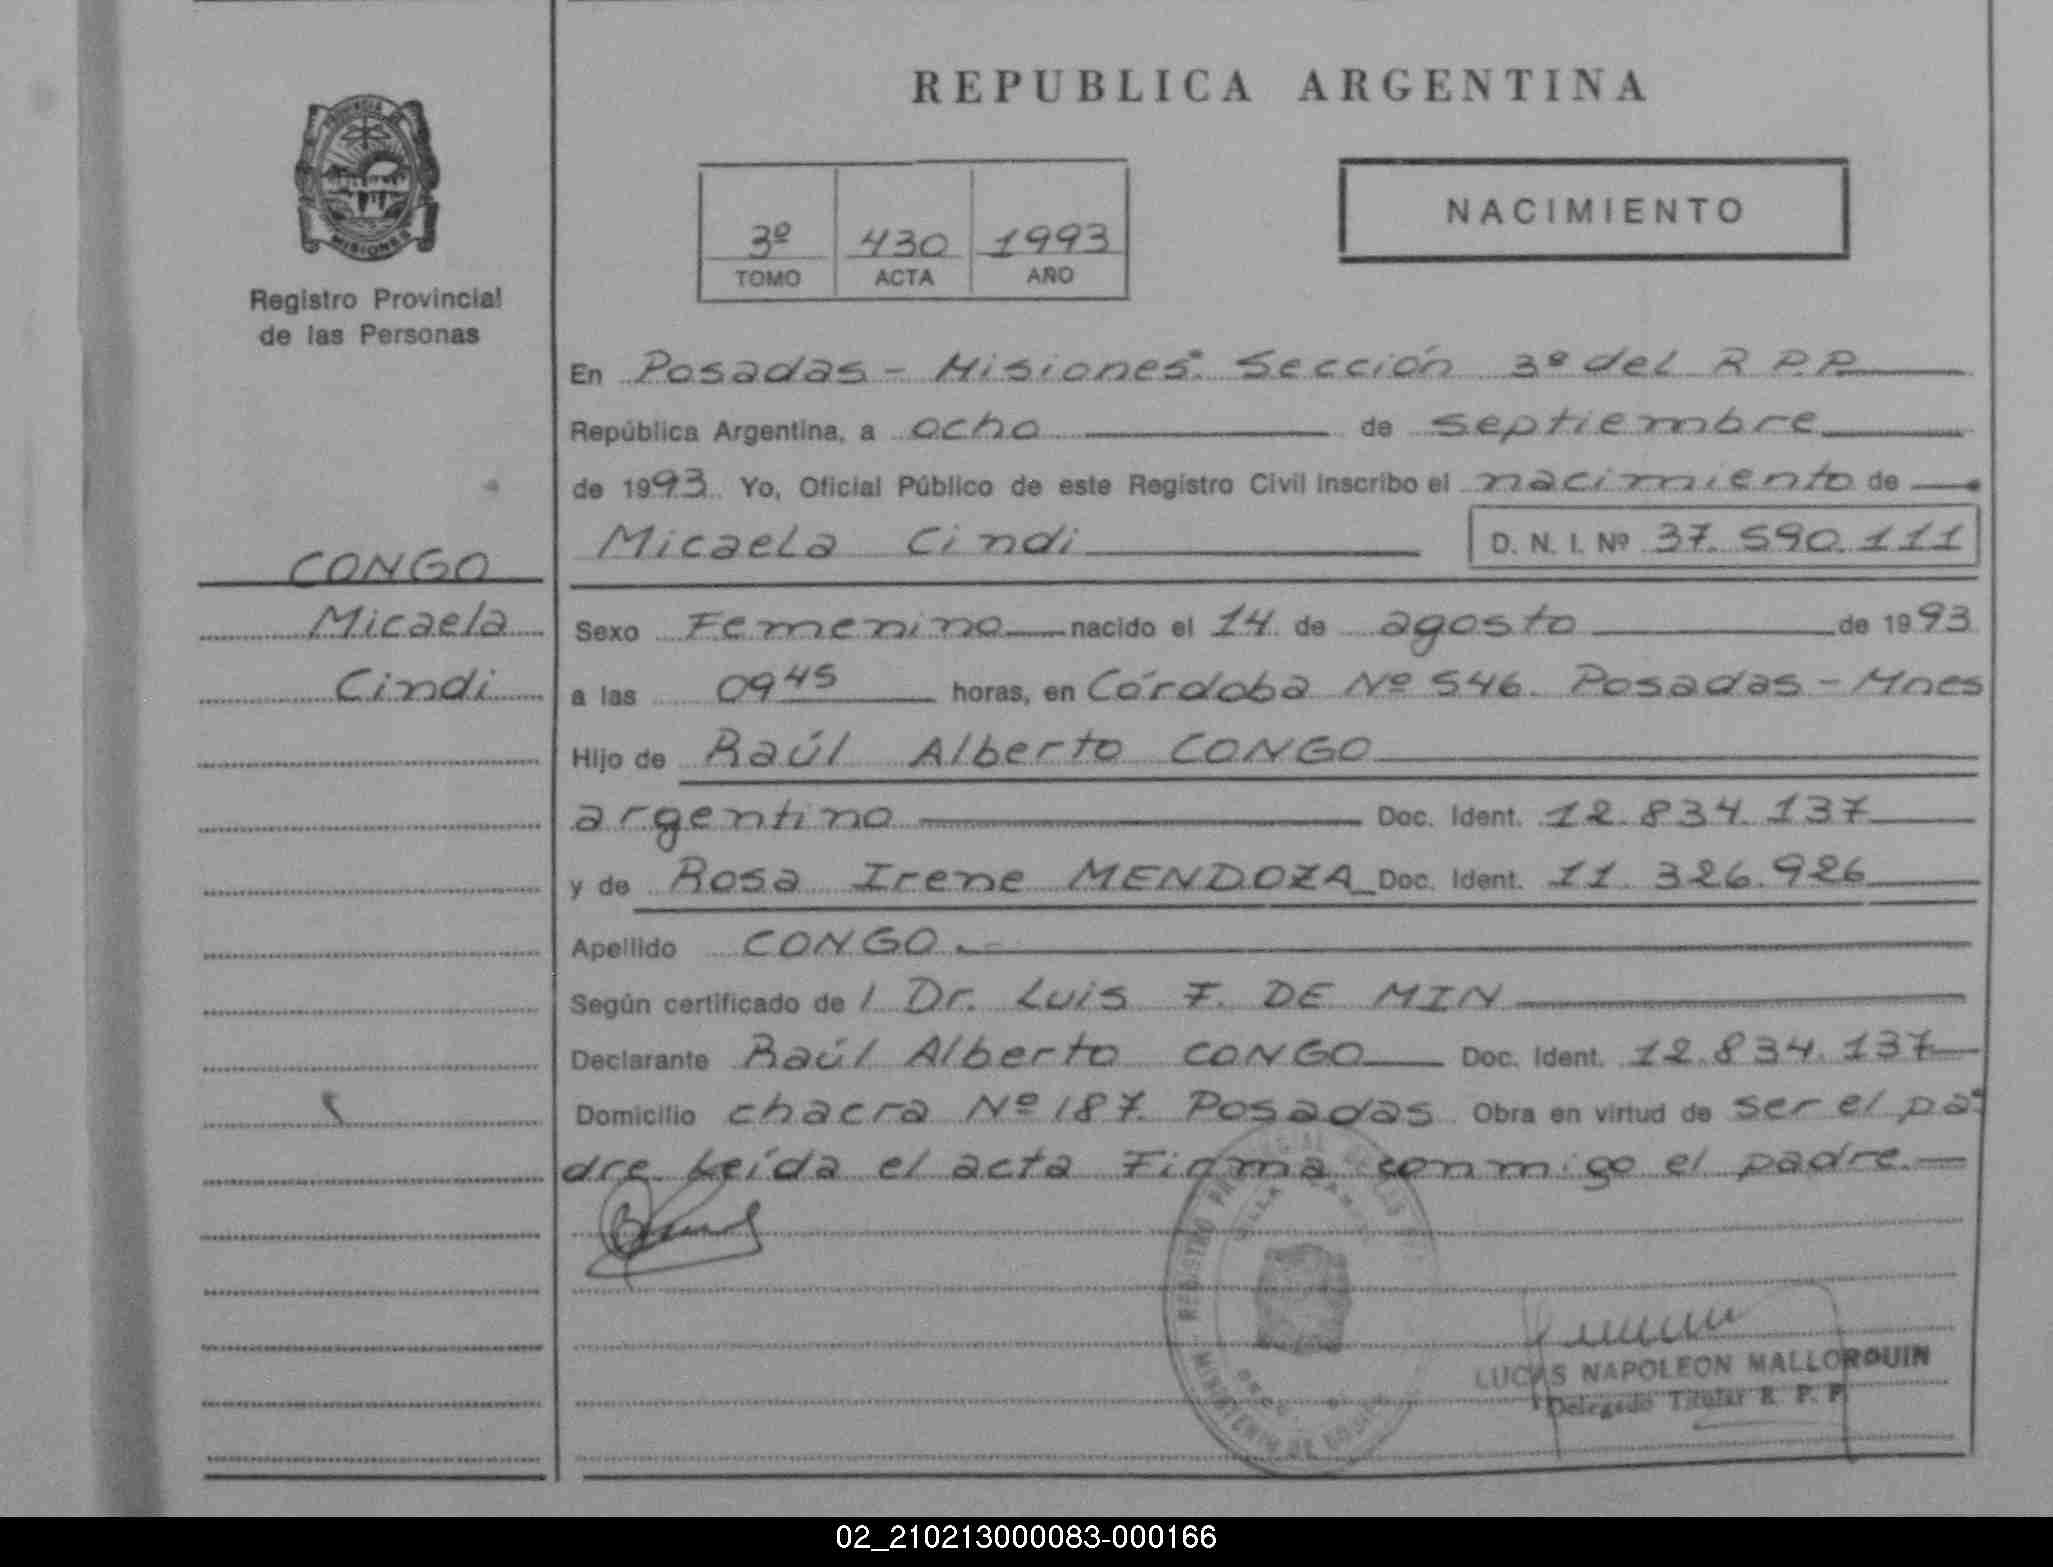 REPUBLICA ARGENTINA
PROVINCIA DE
MISIONES
Registro Provincial
de las Personas
3º 430 1993
TOMO ACTA AÑO
NACIMIENTO
En Posadas - Misiones. Sección 3º del R P.P.
República Argentina, a ocho de septiembre
de 1993. Yo, Oficial Público de este Registro Civil inscribo el nacimiento de
Micaela Cindi D. N. I. Nº 37.590.111
CONGO
Micaela
Cindi
Sexo Femenino nacido el 14 de agosto de 1993
a las 09 45 horas, en Córdoba Nº 546. Posadas - Mnes
Hijo de Raúl Alberto CONGO
argentino Doc. Ident. 12.834.137
y de Rosa Irene MENDOZA Doc. Ident. 11.326.926
Apellido CONGO.-
Según certificado de l Dr. Luis F. DE MIN
Declarante Raúl Alberto CONGO Doc. Ident. 12.834.137
Domicilio chacra Nº 187. Posadas Obra en virtud de ser el pa-
dre. Leída el acta Firma conmigo el padre.-
REGISTRO
MINISTERIO DE
LUCAS NAPOLEON MALLORQUIN
Delegado Titular R. P. P.
02_210213000083-000166